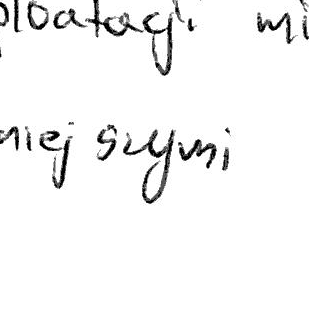 ploatacji mi
niej szymi